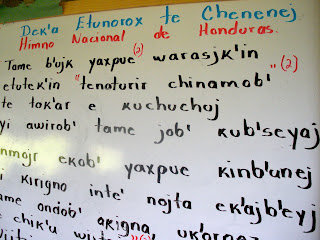 Dek'a Etunorox te Chenenej
Himno Nacional de Honduras.
Tame b'ujk yaxpue (2) warasjk'in
etutek'in "tenaturir chinamob' " (2)
te tok'ar e kuchuchuj
yi awirob' tame job' kub'seyaj
nmojr ekob' yaxpue kinb'unej
i kirigno inte' nojta ek'ajb'eyj
ame ondob' akigna uk'ornej